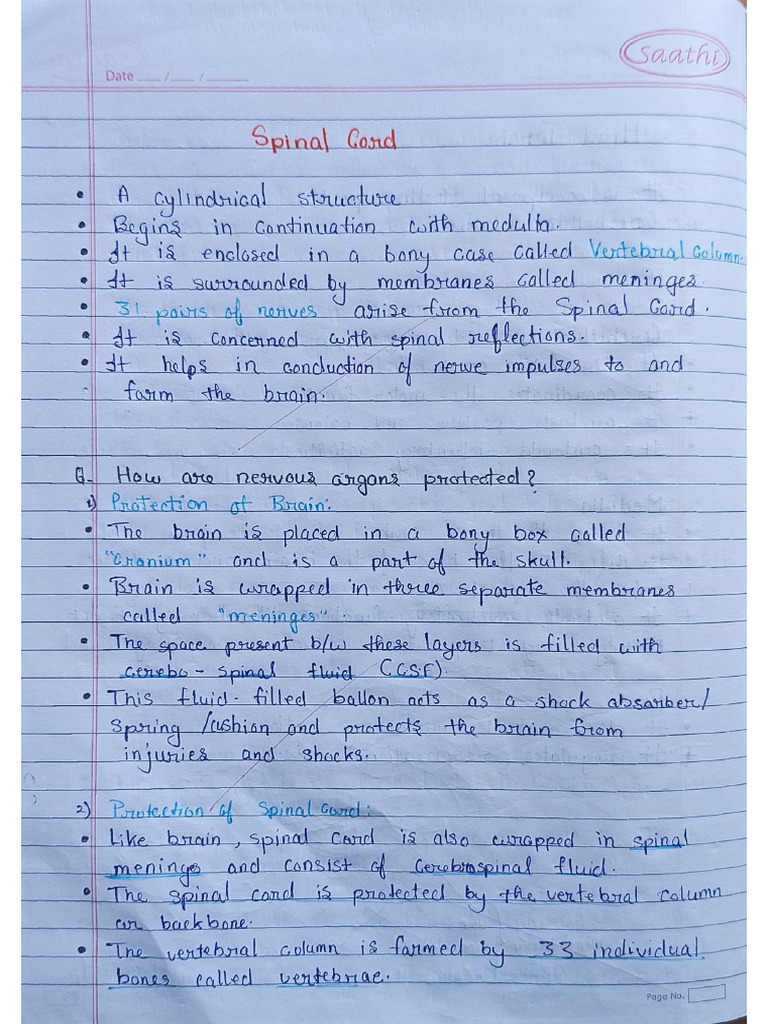 Saathi
Date ___ / ___ / _____
Spinal Cord
• A cylindrical structure
• Begins in continuation with medulla.
• It is enclosed in a bony case called Vertebral Column.
• It is surrounded by membranes called meninges.
• 31 pairs of nerves arise from the Spinal Cord.
• It is concerned with spinal reflections.
• It helps in conduction of nerve impulses to and
farm the brain.
Q- How are nervous argans protected?
1) Protection of Brain:
• The brain is placed in a bony box called
"Cranium" and is a part of the skull.
• Brain is wrapped in three separate membranes
called "meninges".
• The space present b/w these layers is filled with
cerebo-spinal fluid (CSF).
• This fluid-filled ballon acts as a shock absorber/
Spring/cushion and protects the brain from
injuries and shocks.
2) Protection of Spinal Cord:
• Like brain, spinal cord is also wrapped in spinal
mening and consist of Cerebrospinal fluid.
• The spinal cord is protected by the vertebral column
or backbone.
• The vertebral column is farmed by 33 individual
bones called vertebrae.
Page No.